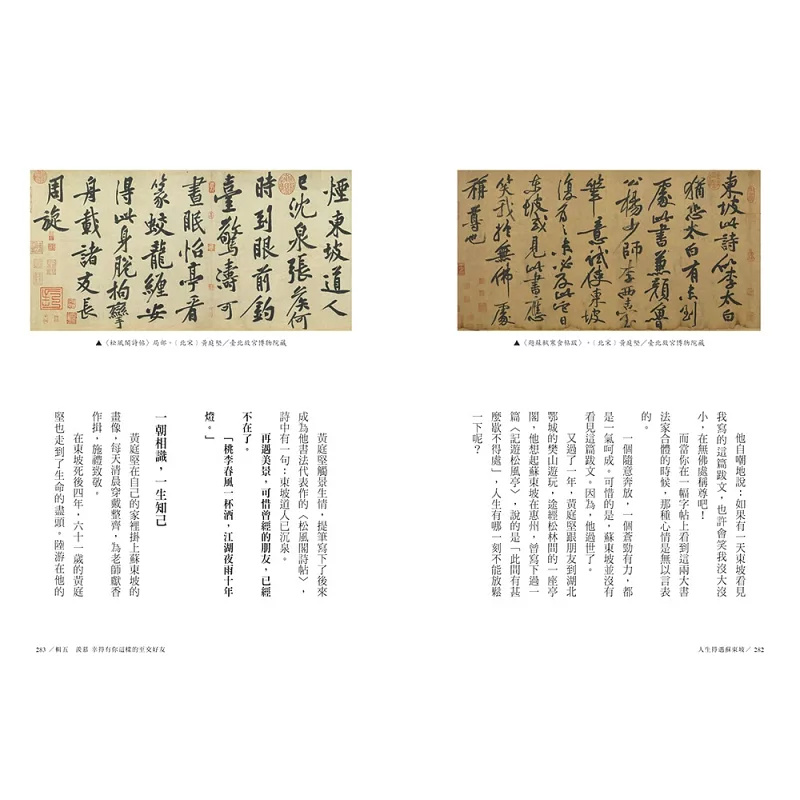 東坡此詩似李太白
猶恐太白有未到
處此書兼顏魯
公楊少師李西臺
筆意試使東坡
復為之未必及此它日
東坡或見此書應
笑我於無佛處
稱尊也
▲《題蘇軾寒食帖跋》，〔北宋〕黃庭堅／臺北故宮博物院藏
他自嘲地說：如果有一天東坡看見
我寫的這篇跋文，也許會笑我沒大沒
小，在無佛處稱尊吧！
而當你在一幅字帖上看到這兩大書
法家合體的時候，那種心情是無以言表
的。
一個隨意奔放，一個蒼勁有力，都
是一氣呵成。可惜的是，蘇東坡並沒有
看見這篇跋文。因為，他過世了。
又過了一年，黃庭堅跟朋友到湖北
鄂城的樊山遊玩，途經松林間的一座亭
閣，他想起蘇東坡在惠州，曾寫下過一
篇〈記遊松風亭〉，說的是「此間有甚
麼歇不得處」，人生有哪一刻不能放鬆
一下呢？
人生得遇蘇東坡／ 282
煙東坡道人
已沈泉張侯何
時到眼前釣
臺驚濤可
晝眠怡亭看
篆蛟龍纏安
得此身脫拘攣
舟載諸友長
周旋
▲《松風閣詩帖》局部，〔北宋〕黃庭堅／臺北故宮博物院藏
黃庭堅觸景生情，提筆寫下了後來
成為他書法代表作的〈松風閣詩帖〉，
詩中有一句：東坡道人已沉泉。
再遇美景，可惜曾經的朋友，已經
不在了。
「桃李春風一杯酒，江湖夜雨十年
燈。」
一朝相識，一生知己
黃庭堅在自己的家裡掛上蘇東坡的
畫像，每天清晨穿戴整齊，為老師獻香
作揖，施禮致敬。
在東坡死後四年，六十一歲的黃庭
堅也走到了生命的盡頭。陸游在他的
283 ／輯五　羨慕 幸得有你這樣的至交好友